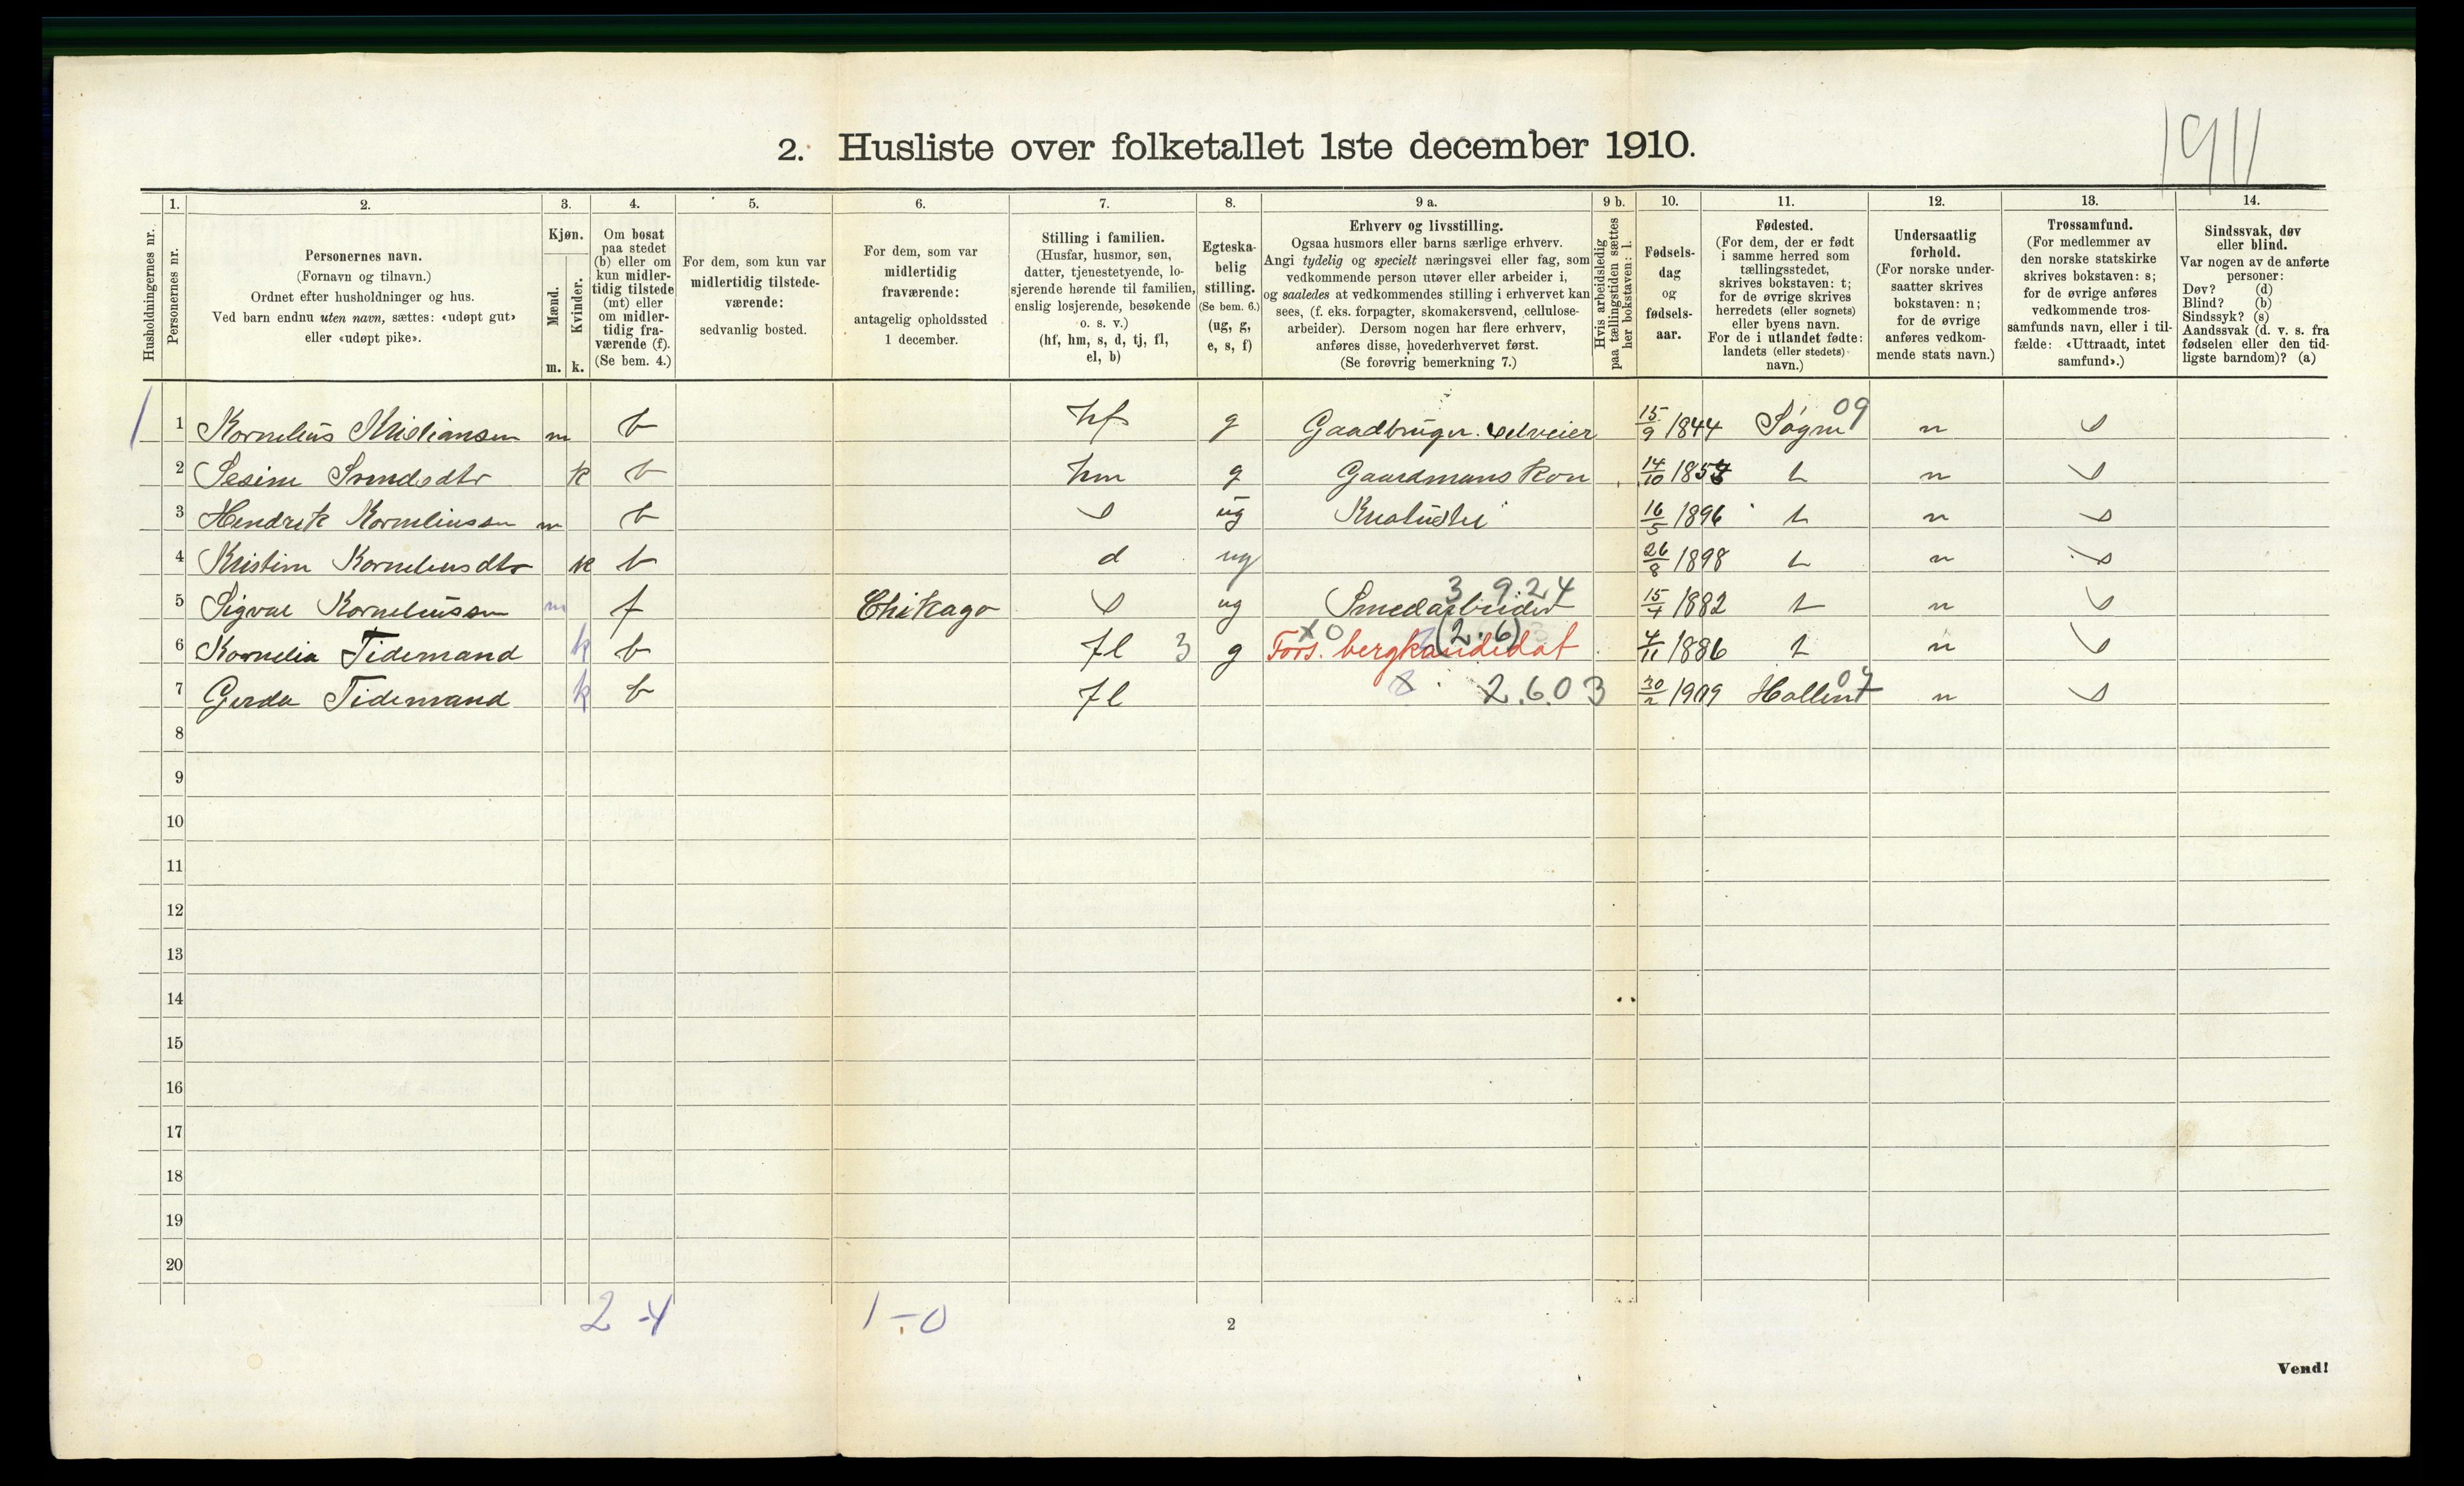 1911
2. Husliste over folketallet 1ste december 1910.
Husholdningernes nr.
1. Personernes nr.
2.
Personernes navn.
(Fornavn og tilnavn.)
Ordnet efter husholdninger og hus.
Ved barn endnu uten navn, sættes: «udøpt gut»
eller «udøpt pike».
3.
Kjøn.
Mænd. Kvinder.
m. k.
4.
Om bosat
paa stedet
(b) eller om
kun midler-
tidig tilstede
(mt) eller
om midler-
tidig fra-
værende (f).
(Se bem. 4.)
5.
For dem, som kun var
midlertidig tilstede-
værende:
sedvanlig bosted.
6.
For dem, som var
midlertidig
fraværende:
antagelig opholdssted
1 december.
7.
Stilling i familien.
(Husfar, husmor, søn,
datter, tjenestetyende, lo-
sjerende hørende til familien,
enslig losjerende, besøkende
o. s. v.)
(hf, hm, s, d, tj, fl,
el, b)
8.
Egteska-
belig
stilling.
(Se bem. 6.)
(ug, g,
e, s, f)
9 a.
Erhverv og livsstilling.
Ogsaa husmors eller barns særlige erhverv.
Angi tydelig og specielt næringsvei eller fag, som
vedkommende person utøver eller arbeider i,
og saaledes at vedkommendes stilling i erhvervet kan
sees, (f. eks. forpagter, skomakersvend, cellulose-
arbeider). Dersom nogen har flere erhverv,
anføres disse, hovederhvervet først.
(Se forøvrig bemerkning 7.)
9 b.
Hvis arbeidsledig
paa tællingstiden sættes
her bokstaven: l.
10.
Fødsels-
dag
og
fødsels-
aar.
11.
Fødested.
(For dem, der er født
i samme herred som
tællingsstedet,
skrives bokstaven: t;
for de øvrige skrives
herredets (eller sognets)
eller byens navn.
For de i utlandet fødte:
landets (eller stedets)
navn.)
12.
Undersaatlig
forhold.
(For norske under-
saatter skrives
bokstaven: n;
for de øvrige
anføres vedkom-
mende stats navn.)
13.
Trossamfund.
(For medlemmer av
den norske statskirke
skrives bokstaven: s;
for de øvrige anføres
vedkommende tros-
samfunds navn, eller i til-
fælde: «Uttraadt, intet
samfund».)
14.
Sindssvak, døv
eller blind.
Var nogen av de anførte
personer:
Døv? (d)
Blind? (b)
Sindssyk? (s)
Aandssvak (d. v. s. fra
fødselen eller den tid-
ligste barndom)? (a)
1 1 Kornelius Kristiansen m b hf g Gaadbruger. selveier 15/9 1844 Søgne 09 n s
2 Sesine Svendsdtr k b hm g Gaardmans kon 14/10 n s
3 Hendrik Korneliussen m b s ug 16/5 1896 t n s
4 Kristine Korneliusdtr k b d ug 26/8 1898 t n s
5 Sigval Korneliussen m f Chikago s ug Smedarbeider 3 9.24 15/4 1882 t n s
6 Kornelia Tidemand k b fl 3 g Fors. bergkandidat x0 (2.6) 4/11 1886 t n s
7 Gerda Tidemand k b fl x 2.6.03 1909 07 n s
8
9
10
11
12
13
14
15
16
17
18
19
20
2 - 4 1 - 0
2
Vend!